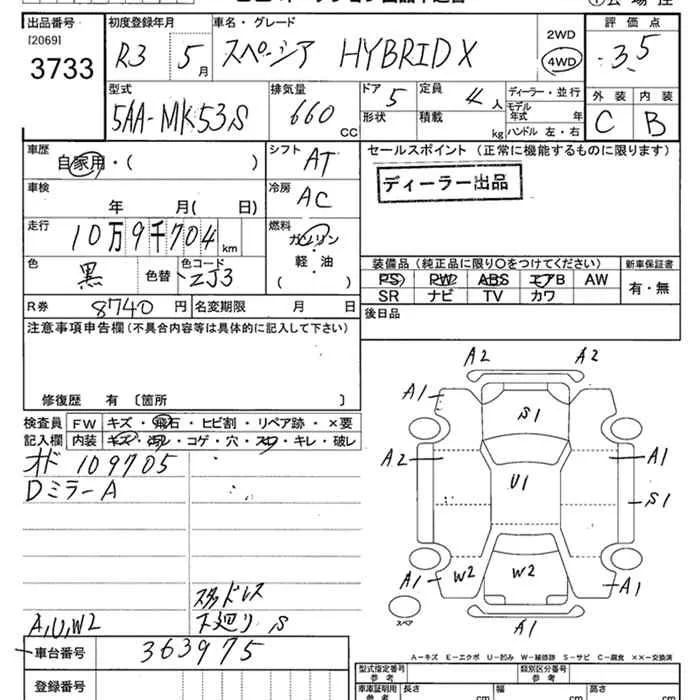 出品番号 初度登録年月 車名・グレード 2WD 評価点
[2069] R3 5月 スペーシア HYBRID X 4WD 3.5
3733
型式 排気量 ドア 定員 ディーラー・並行 外装 内装
5AA-MK53S 660 CC 5 4人 モデル年式 年 C B
形状 積載 kg ハンドル 左・右
車歴 自家用・( ) シフト AT セールスポイント (正常に機能するものに限ります)
ディーラー出品
車検 年 月( 日) 冷房 AC
走行 10万9千704km 燃料 ガソリン
軽・油
( )
色 黒 色替 色コード ZJ3
装備品(純正品に限り○をつけてください) 新車保証書
PS PW ABS エアB AW 有・無
SR ナビ TV カワ
R券 8740円 名変期限 月 日 後日品
注意事項申告欄(不具合内容等は具体的に記入して下さい)
修復歴 有 〔箇所 〕
検査員 FW キズ・飛石・ヒビ割・リペア跡・×要
記入欄 内装 キズ・コゲ・穴・キレ・破レ
オド 109705
DミラーA
スタッドレス
下廻り S
A,U,W2
車台番号 363975
登録番号
A2 A2
A1 S1
A2 U1 A1
S1
A1 W2 W2 A1
スペア A1
A－キズ E－エクボ U－凹み W－補修跡 S－サビ C－腐食 ××－交換済
型式指定番号 参考 類別区分番号 参考
車庫証明用 参考 長さ cm 幅 cm 高さ cm